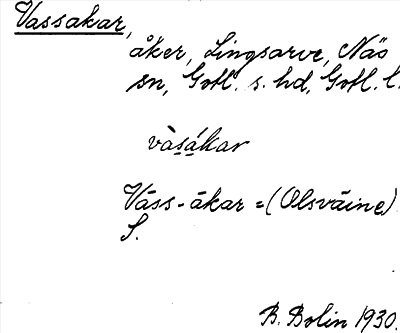 Vassakar,
åker, Lingsarve, Näs
sn, Gotl. s. hd, Gotl. l.
vàsákar
Vāss-ākar = (Olsvāine)
S.
B. Bolin 1930.